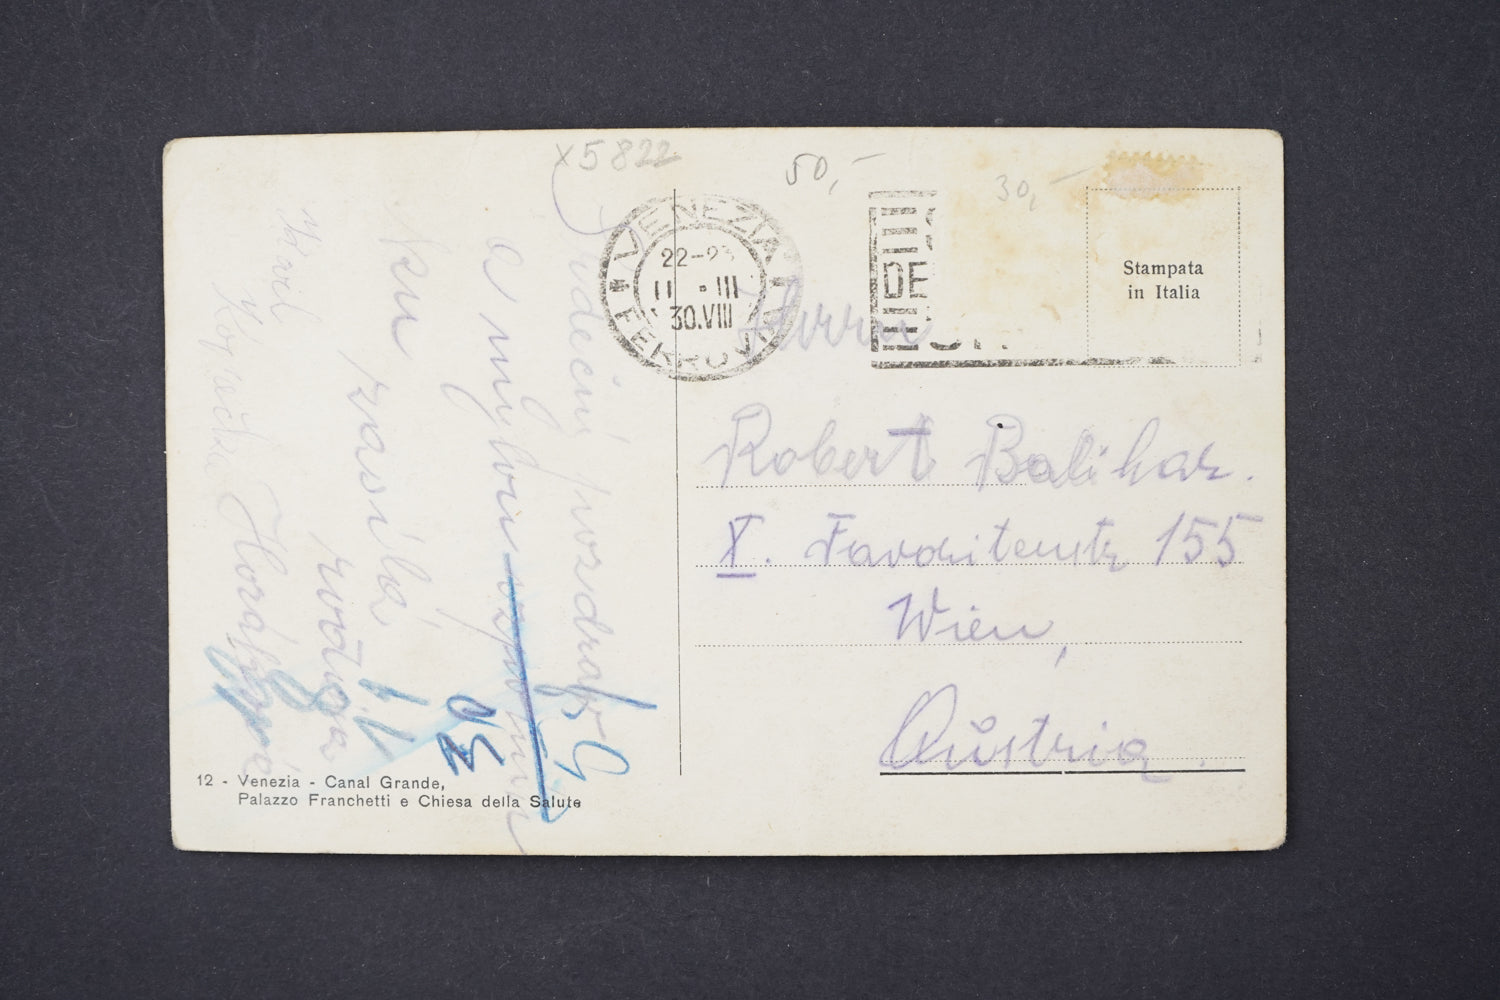 x5822
50,-
30,-
VENEZIA
FERROVIA
22-23
11 • III
30.VIII
DE
Stampata
in Italia
Herrn
Robert Balihar.
X. Favoritenstr 155
Wien,
Austria.
Srdečný pozdrav
a milou vzpomín
ku zasílá
rodina
Horákova
30
12 - Venezia - Canal Grande,
Palazzo Franchetti e Chiesa della Salute